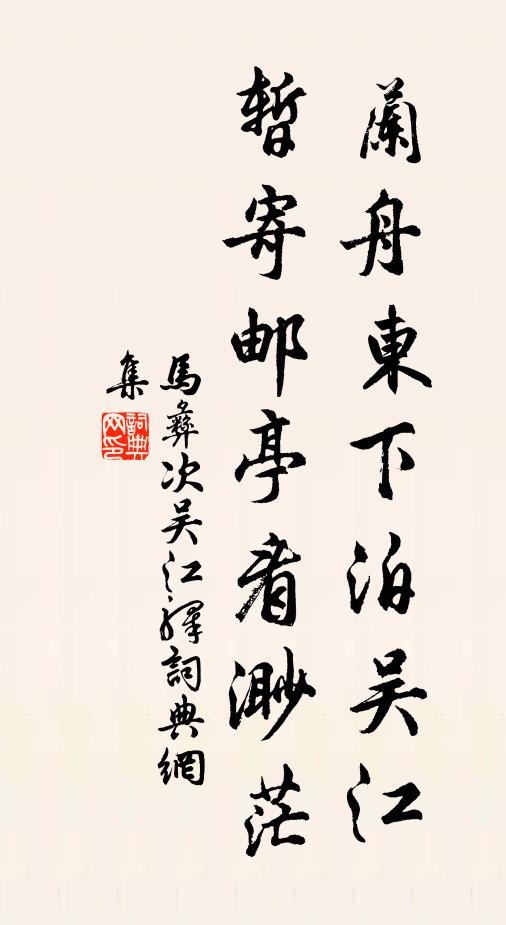 蘭舟東下泊吴江
暫寄邮亭看渺茫
馬彝次吴江驛詞典網
集
詞典
网印